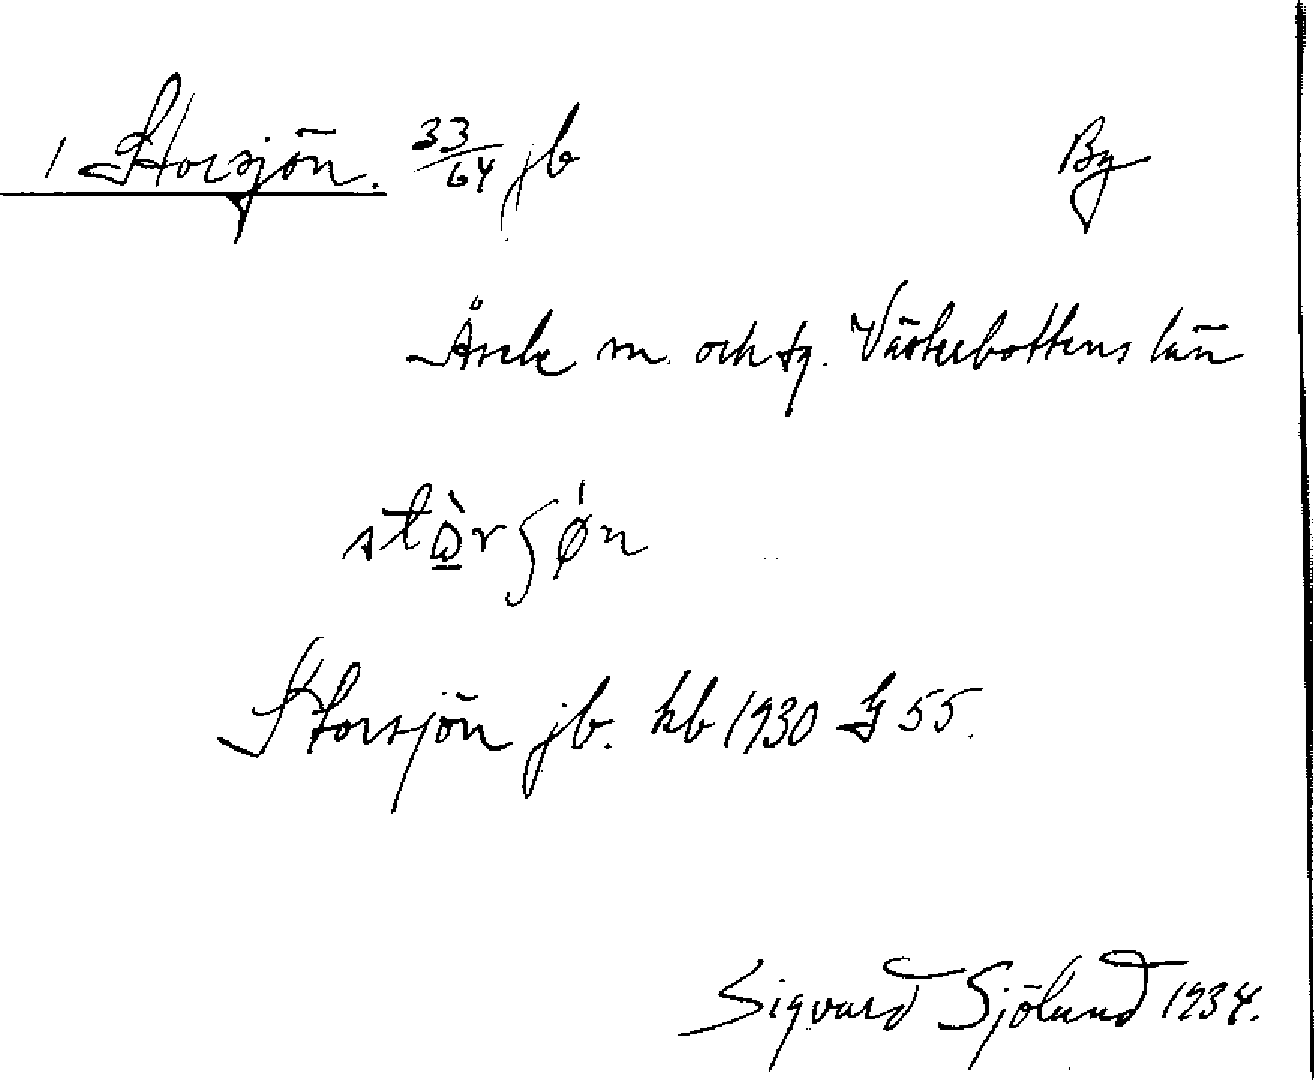 1 Storsjön. 33/64 jb By
Åsele sn. och tg. Västerbottens län
stò̱rʃø´n
Storsjön jb. kb 1930 G 55.
Sigvard Sjölund 1934.